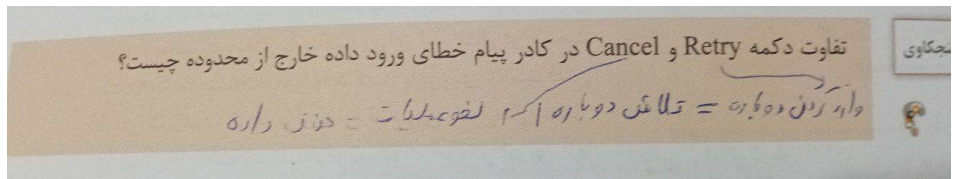 کنجکاوی
تفاوت دکمه Retry و Cancel در کادر پیام خطای ورود داده خارج از محدوده چیست؟
وارد کردن دوباره = تلاش دوباره لغو عملیات = حذف داده